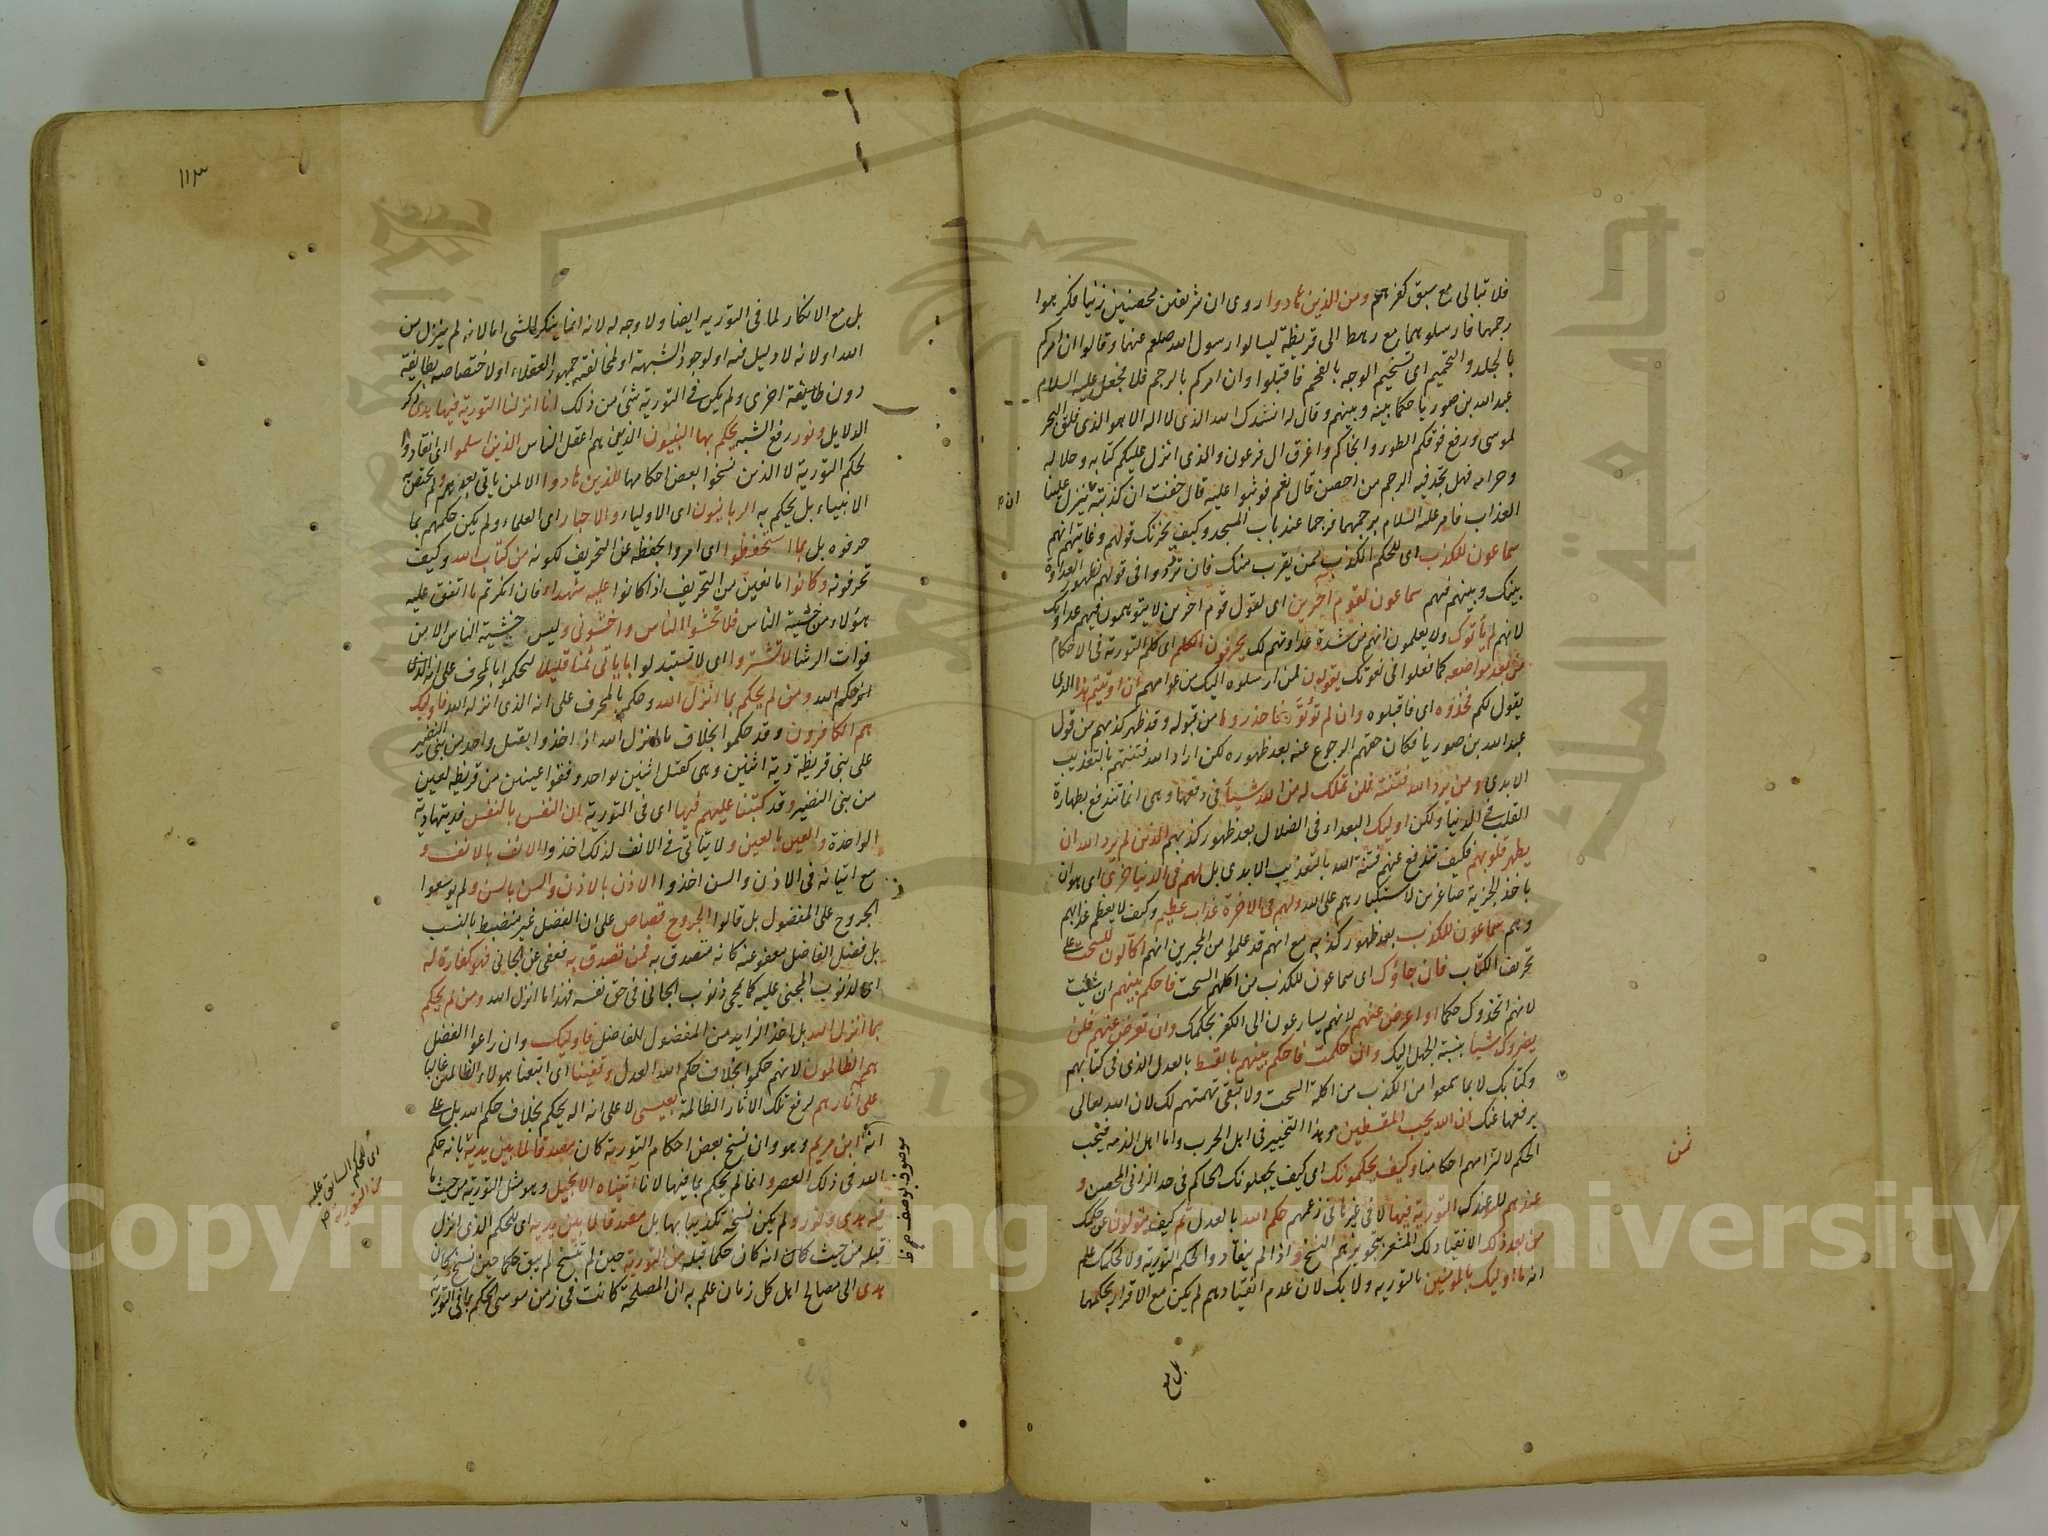 فلا تبالى مع سبق كفرهم ومن الذين هادوا روى ان شريفين محصنين زنيا فكرهوا
رجمهما فارسلوهما مع رهط الى قريظة ليسالوا رسول الله صلعم عنهما وقالوا ان امركم
بالجلد والتحميم اى تسخيم الوجه بالفحم فاقبلوا وان امركم بالرجم فلا فجعل عليه السلام
عبد الله بن صوريا حكما بينه وبينهم وقال له انشدك الله الذى لا اله الا هو الذى فلق البحر
لموسى ورفع فوقكم الطور وانجاكم واغرق ال فرعون والذى انزل عليكم كتابه وحلاله
وحرامه فهل تجد فيه الرجم من احصن قال نعم فوثبوا عليه قال خفت ان كذبته ينزل علينا
العذاب فامر عليه السلام برجمهما فرجما عند باب المسجد وكيف يحزنك قولهم وغايتهم انهم
سماعون للكذب اى للحكم الكذب لمن يقرب منك فان ترددوا فى قولهم لظهور العداوة
بينك وبينهم فهم سماعون لقوم اخرين اى لقول قوم اخرين لا يتوهمون فيهم عداوتك
لانهم لم يأتوك ولا يعلمون انهم من شدة عداوتهم لك يحرفون الكلم اى كلم التورية فى الاحكام
من بعد مواضعه كما فعلوا فى نعوتك يقولون لمن ارسلوه اليك من عوامهم ان اوتيتم هذا الذى
يقول لكم فخذوه اى فاقبلوه وان لم تؤتوه فاحذروا من قبوله وقد ظهر كذبهم من قول
عبد الله بن صوريا فكان حقهم الرجوع عنه بعد ظهوره لكن اراد الله فتنتهم بالتعذيب
الابدى ومن يرد الله فتنته فلن تملك له من الله شيأ فى دفعها وهى انما تندفع بطهارة
القلب فى الدنيا ولكن اوليك البعداء فى الضلال بعد ظهور كذبهم الذين لم يرد الله ان
يطهر قلوبهم فكيف تندفع عنهم فتنة الله بالتعذيب الابدى بل لهم فى الدنيا خزى اى هوان
باخذ الجزية صاغرين لاستكبارهم على الله ولهم فى الاخرة عذاب عظيم وكيف لا يعظم عذابهم
وهم سماعون للكذب بعد ظهور كذبه مع انهم قد علموا من المجربين انهم اكالون للسحت على
تحريف الكتاب فان جاؤك اى سماعون للكذب من اكلهم السحت فاحكم بينهم ان شئت
لانهم اتخذوك حكما او اعرض عنهم لانهم يسارعون الى الكفر بحكمك وان تعرض عنهم فلن
يضروك شيأ بنسبة الجهل اليك وان حكمت فاحكم بينهم بالقسط بالعدل الذى فى كتابهم
وكتابك لا بما سمعوا من الكذب من اكلة السحت ولا تبقى تهمتهم لك لان الله تعالى
يرفعها عنك ان الله يحب المقسطين وهذا التخيير فى اهل الحرب واما اهل الذمه فيجب
الحكم لالتزامهم احكامنا وكيف يحكمونك اى كيف يجعلونك الحاكم فى حد الزانى المحصن و
عندهم التورية فيها لا فى غيرها فى زعمهم حكم الله بالعدل ثم كيف يتولون عن حكمك
من بعد ذلك الانقياد لك المشعر بتجويزهم النسخ واذا لم ينقادوا لحكم التورية ولا لحكمك علم
انه ما اوليك بالمومنين بالتوريه ولا بك لان عدم انقيادهم لم يكن مع الاقرار بحكمها
بل مع
ثمن
١١٣
بل مع الانكار لما فى التوريه ايضا ولا وجه له لانه انما ينكر الشى اما لانه لم ينزل من
الله او لانه لا دليل فيه او لوجود الشبهة او لمخالفته جمهور العقلاء او لاختصاصه بطائفة
دون طايفة اخرى ولم يكن فى التورية شئ من ذلك انا انزلنا التورية فيها هدى
الدلايل ونور رفع الشبه يحكم بها النبيون الذين هم اعقل الناس الذين اسلموا اى انقادوا
لحكم التورية لا الذين نسخوا بعض احكامها للذين هادوا لا لمن ياتى بعدهم ولم يختص به
الانبياء بل يحكم به الربانيون اى الاولياء والاحبار اى العلماء ولم يكن حكمهم بما
حرفوه بل بما استحفظوا اى امروا بحفظه عن التحريف لكونه من كتاب الله وكيف
تحرفونه وكانوا مانعين من التحريف اذ كانوا عليه شهداء فان انكرتم ما اتفق عليه
هؤلاء من خشية الناس فلا تخشوا الناس واخشونى وليس خشية الناس الا من
فوات الرشا لا تشتروا اى لا تستبدلوا باياتى ثمنا قليلا لتحكموا بالمحرف على انه الذى
حكم الله ومن لم يحكم بما انزل الله وحكم بالمحرف على انه الذى انزله الله فاوليك
هم الكافرون وقد حكموا بخلاف ما انزل الله اذ اخذوا بقتل واحد من بنى النضير
على بنى قريظة دية اثنين وهى كقتل اثنين لواحد وفقوا عينين من قريظه لعين
من بنى النضير وقد كتبنا عليهم فيها اى فى التورية ان النفس بالنفس فديتها دية
الواحدة والعين بالعين ولا يتأتى فى الانف لذلك اخذوا الانف بالانف و
مع اتيانه فى الاذن والسن اخذوا الاذن بالاذن والسن بالسن ولم يوسعوا
الجروح على المفضول بل قالوا الجروح قصاص على ان الفضل غير منضبط بالنسب
بل فضل الفاضل بعفوه عنه كانه متصدق به فمن تصدق به فعفى عن الجانى فهو كفارة له
اى لذنوب المجنى عليه كما يمحى ذنوب الجانى فى حق نفسه فهذا ما انزل الله ومن لم يحكم
بما انزل الله بل اخذ الزايد من المفضول للفاضل فاوليك وان راعوا الفضل
هم الظالمون لانهم حكموا بخلاف حكم الله العدل وقفينا اى اتبعنا هولاء الظالمين غالبا
على آثارهم لرفع تلك الاثار الظالمة بعيسى لا على انه اله يحكم بخلاف حكم الله بل على
انه ابن مريم وهو وان نسخ بعض احكام التورية كان مصدقا لما بين يديه بانه حكم
الله فى ذلك العصر وانما لم يحكم بما فيها لانا آتيناه الانجيل وهو مثل التورية من حيث ما
فيه هدى ونور ولم يكن نسخه تكذيبا بها بل مصدقا لما بين يديه اى للحكم الذى انزل
قبله من حيث كان انه كان حكما قبله من التورية حين لم تنسخ لم يبق حكما حين نسخ وكان
هدى الى مصالح اهل كل زمان علم به ان المصلحة كانت فى زمن موسى الحكم بما فى التورية
موصوف بوصف
اى للحكم السابق عليه
من التورية
Copyright © King Saud University
جامعة الملك سعود